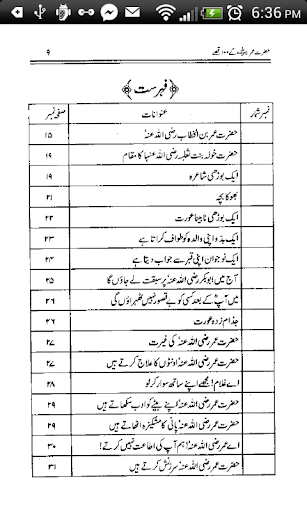 6:36 PM
حضرت عمر رضی اللہ عنہ کے ۱۰۰ قصے ۹
﴿فہرست﴾
نمبر شمار عنوانات صفحہ نمبر
حضرت عمر بن الخطاب رضی اللہ عنہ ۱۵
حضرت خولہ بنت ثعلبہ رضی اللہ عنہا کا مقام ۱۹
ایک بوڑھی شاعرہ ۱۹
بھوکا بچہ
ایک بوڑھی نابینا عورت ۲۲
ایک بدو اپنی والدہ کو طواف کراتا ہے ۲۳
ایک نوجوان اپنی قبر سے جواب دیتا ہے ۲۴
آج میں ابوبکر رضی اللہ عنہ پر سبقت لے جاؤں گا ۲۵
میں آپؓ کے بعد کسی کو بے قصور نہیں ٹھہراؤں گی ۲۶
جذام زدہ عورت ۲۶
حضرت عمر رضی اللہ عنہ کی غیرت ۲۷
حضرت عمر رضی اللہ عنہ اونٹوں کا علاج کرتے ہیں ۲۷
اے غلام! مجھے اپنے ساتھ سوار کرلو ۲۸
حضرت عمر رضی اللہ عنہ اپنے بیٹے کو ادب سکھاتے ہیں ۲۹
حضرت عمر رضی اللہ عنہ پانی کا مشکیزہ اٹھاتے ہیں ۲۹
اے عمر رضی اللہ عنہ! ہم آپ کی اطاعت نہیں کرتے! ۳۰
حضرت عمر رضی اللہ عنہ سرزنش کرتے ہیں ۳۱